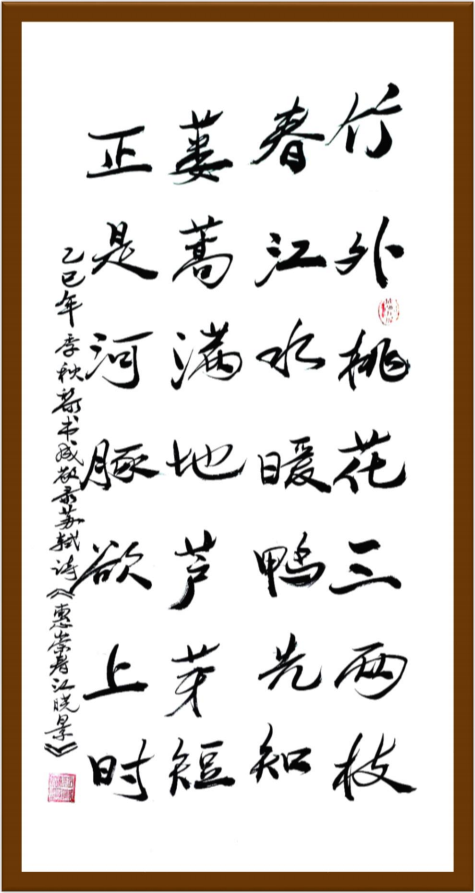 竹外桃花三两枝
春江水暖鸭先知
蒌蒿满地芦芽短
正是河豚欲上时
乙巳年季秋 书 敬录苏轼诗《惠崇春江晓景》